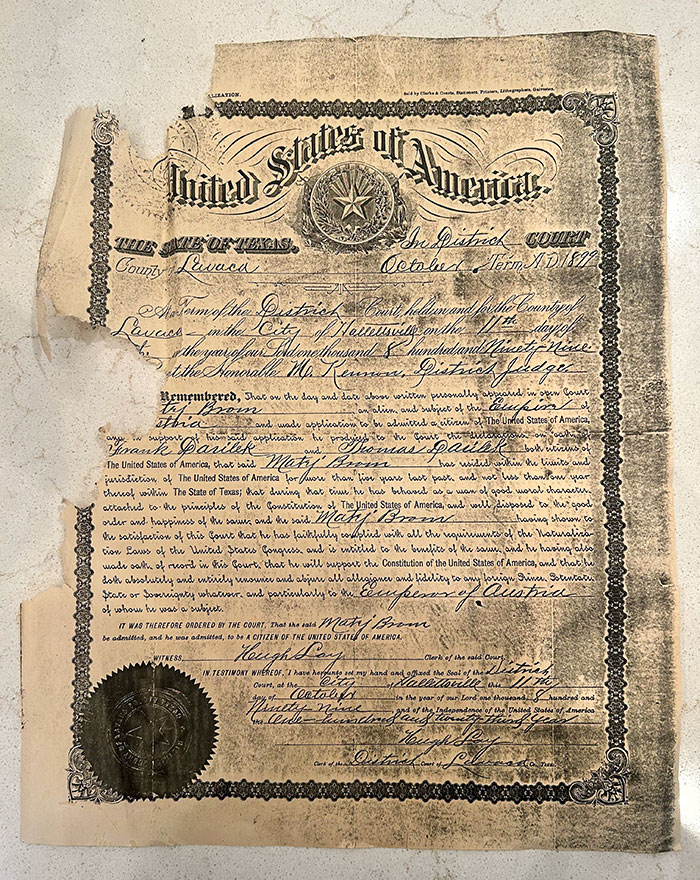 LIZATION. Sold by Clarke & Courts, Stationers, Printers, Lithographers, Galveston.
United States of America.
THE STATE OF TEXAS. In District COURT
County Lavaca October Term, A.D. 1899
At a Term of the District Court, holden in and for the County of
Lavaca in the City of Hallettsville on the 11th day of
the year of our Lord one thousand 8 hundred and Ninety Nine
the Honorable M. Kennon, District Judge
Remembered, That on the day and date above written personally appeared in open Court
Brom an alien and subject of the Empire of
and made application to be admitted a citizen of The United States of America,
and in support of his said application he produced to the Court the declaration on oath of
Frank Darilek and Thomas Darilek both citizens of
The United States of America, that said Matij Brom has resided within the limits and
jurisdiction of The United States of America for more than five years last past, and not less than one year
thereof within The State of Texas; that during that time he has behaved as a man of good moral character
attached to the principles of the Constitution of The United States of America, and well disposed to the good
order and happiness of the same; and the said Matij Brom having shown to
the satisfaction of this Court that he has faithfully complied with all the requirements of the Naturaliza-
tion Laws of the United States Congress, and is entitled to the benefits of the same, and he having also
made oath, of record in this Court, that he will support the Constitution of the United States of America, and that he
doth absolutely and entirely renounce and abjure all allegiance and fidelity to any foreign Prince, Potentate,
State or Sovereignty whatever, and particularly to the Emperor of Austria
of whom he was a subject.
IT WAS THEREFORE ORDERED BY THE COURT, That the said Matij Brom
be admitted, and he was admitted, to be A CITIZEN OF THE UNITED STATES OF AMERICA.
WITNESS Hugh Lay Clerk of the said Court
IN TESTIMONY WHEREOF, I have hereunto set my hand and affixed the Seal of the District
Court, at the City of Hallettsville this 11th
day of October in the year of our Lord one thousand 8 hundred and
Ninety Nine and of the Independence of the United States of America
the One hundred and twenty third Year
Hugh Lay
Clerk of the District Court of Lavaca Co., Texas.